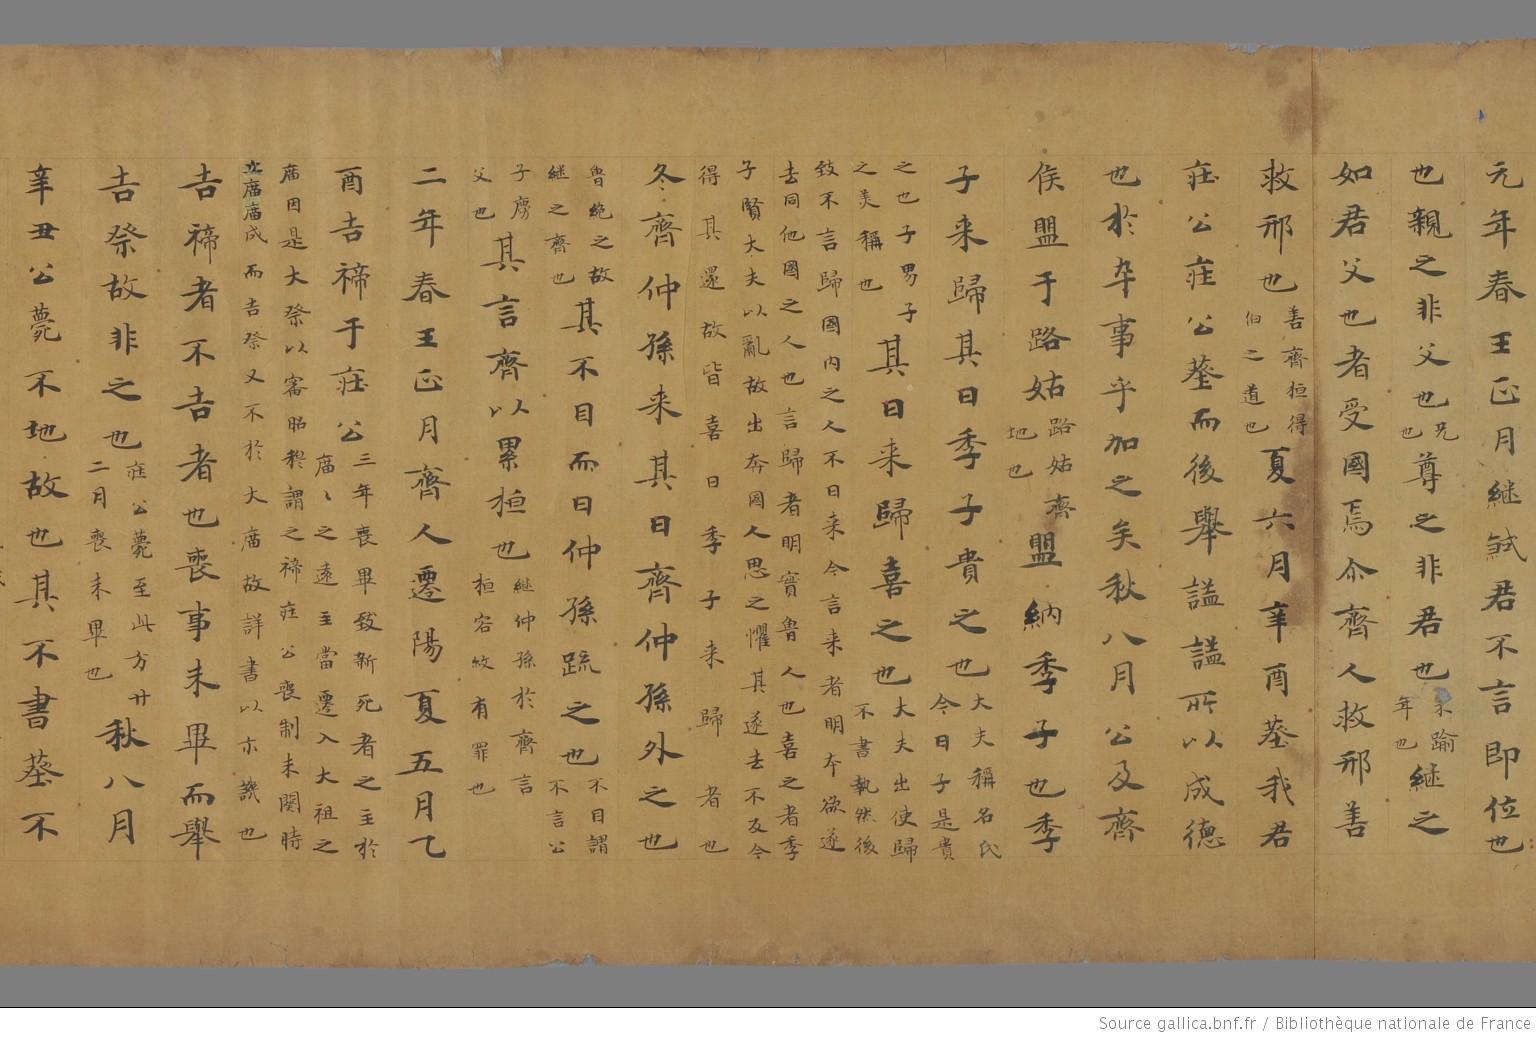 元年春王正月継弒君不言即位
也親之非父也兄也尊之非君也未踰年也継之
如君父也者受國焉尒齊人救邢善
救邢也善齊桓得伯之道也夏六月辛酉葬我君
莊公莊公葬而後舉謚謚所以成德
也於卒事乎加之矣秋八月公及齊
侯盟于路姑路姑齊地也盟納季子也季
子来歸其曰季子貴之也大夫稱名氏今曰子是貴
之也子男子之美稱也其曰来歸喜之也大夫出使歸不書執然後
致不言歸國内之人不曰来今言来者明本欲遂
去同他國之人也言歸者明實魯人也喜之者季
子賢大夫以亂故出奔國人思之懼其遂去不反今
得其還故皆喜曰季子来歸者也
冬齊仲孫来其曰齊仲孫外之也
魯絕之故継之齊也其不目而曰仲孫疏之也不目謂不言公
子慶父也其言齊以累桓也継仲孫於齊言桓容赦有罪也
二年春王正月齊人遷陽夏五月乙
酉吉禘于莊公三年喪畢致新死者之主於廟〻之遠主當遷入大祖之
廟因是大祭以審昭穆謂之禘莊公喪制未闋時
立廟廟成而吉祭又不於大廟故詳書以示譏也
吉禘者不吉者也喪事未畢而舉
吉祭故非之也莊公薨至此方廿二月喪未畢也秋八月
辛丑公薨不地故也其不書葬不
Source gallica.bnf.fr / Bibliothèque nationale de France